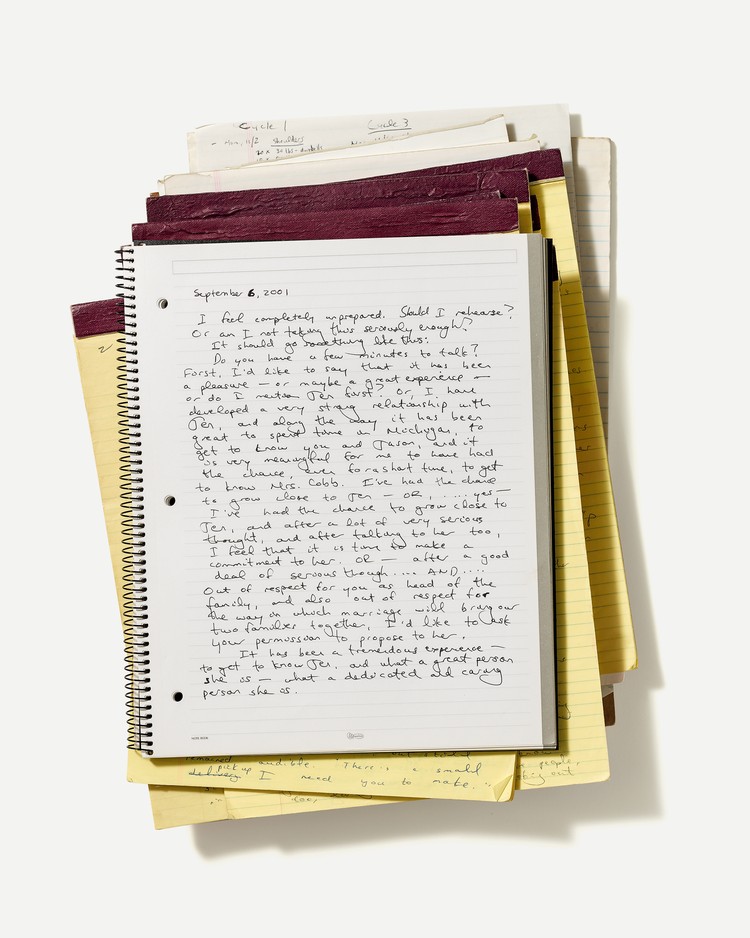 Cycle 1 Cycle 3
Mon, 11/2 shoulders
September 6, 2001
I feel completely unprepared. Should I rehearse?
Or am I not taking this seriously enough?
It should go something like this:
Do you have a few minutes to talk?
First, I'd like to say that it has been
a pleasure — or maybe a great experience —
or do I mention Jen first? Or, I have
developed a very strong relationship with
Jen, and along the way it has been
great to spend time in Michigan, to
get to know you and Jason, and it
is very meaningful for me to have had
the chance, even for a short time, to get
to know Mrs. Cobb. I've had the chance
to grow close to Jen — OR, .... yes —
I've had the chance to grow close to
Jen, and after a lot of very serious
thought, and after talking to her too,
I feel that it is time to make a
commitment to her. OR — after a good
deal of serious though .... AND ....
Out of respect for you as head of the
family, and also out of respect for
the way in which marriage will bring our
two families together, I'd like to ask
your permission to propose to her.
It has been a tremendous experience —
to get to know Jen, and what a great person
she is — what a dedicated and caring
person she is.
remained
pick up audible. "There is a small people,
delivery I need you to make.